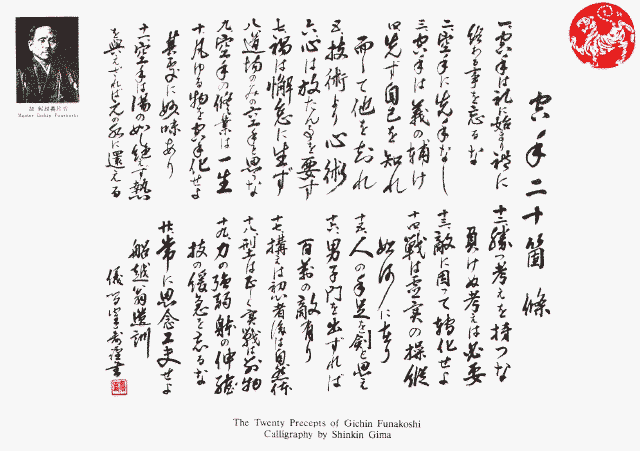 空手二十箇條
一空手は礼に始まり礼に
終わる事を忘るな
二空手に先手なし
三空手は義の補け
四先づ自己を知れ
而して他を知れ
五技術より心術
六心は放たん事を要す
七禍は懈怠に生ず
八道場のみの空手と思うな
九空手の修業は一生
十凡ゆる物を空手化せよ
其処に妙味あり
十一空手は湯の如し絶えず熱
を与えざれば元の水に還える
十二勝つ考えを持つな
負けぬ考えは必要
十三敵に因って轉化せよ
十四戦は虚実の操縦
如何に在り
十五人の手足を剣と思え
十六男子門を出ずれば
百万の敵有り
十七構えは初心者後は自然体
十八型は正しく実戦は別物
十九力の強弱躰の伸縮
技の緩急を忘るな
廿常に思念工夫せよ
船越翁遺訓
Master Gichin Funakoshi
The Twenty Precepts of Gichin Funakoshi
Calligraphy by Shinkin Gima